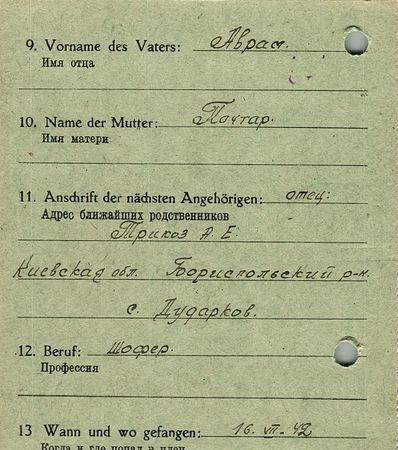 9. Vorname des Vaters: Аврам.
Имя отца
10. Name der Mutter: Почтар.
Имя матери
11. Anschrift der nächsten Angehörigen: отец:
Адрес ближайших родственников
Трикоз А. Е.
Киевская обл. Бориспольский р-н.
с. Дударков.
12. Beruf: Шофер.
Профессия
13 Wann und wo gefangen: 16. VII-42
Когда и где попал в плен